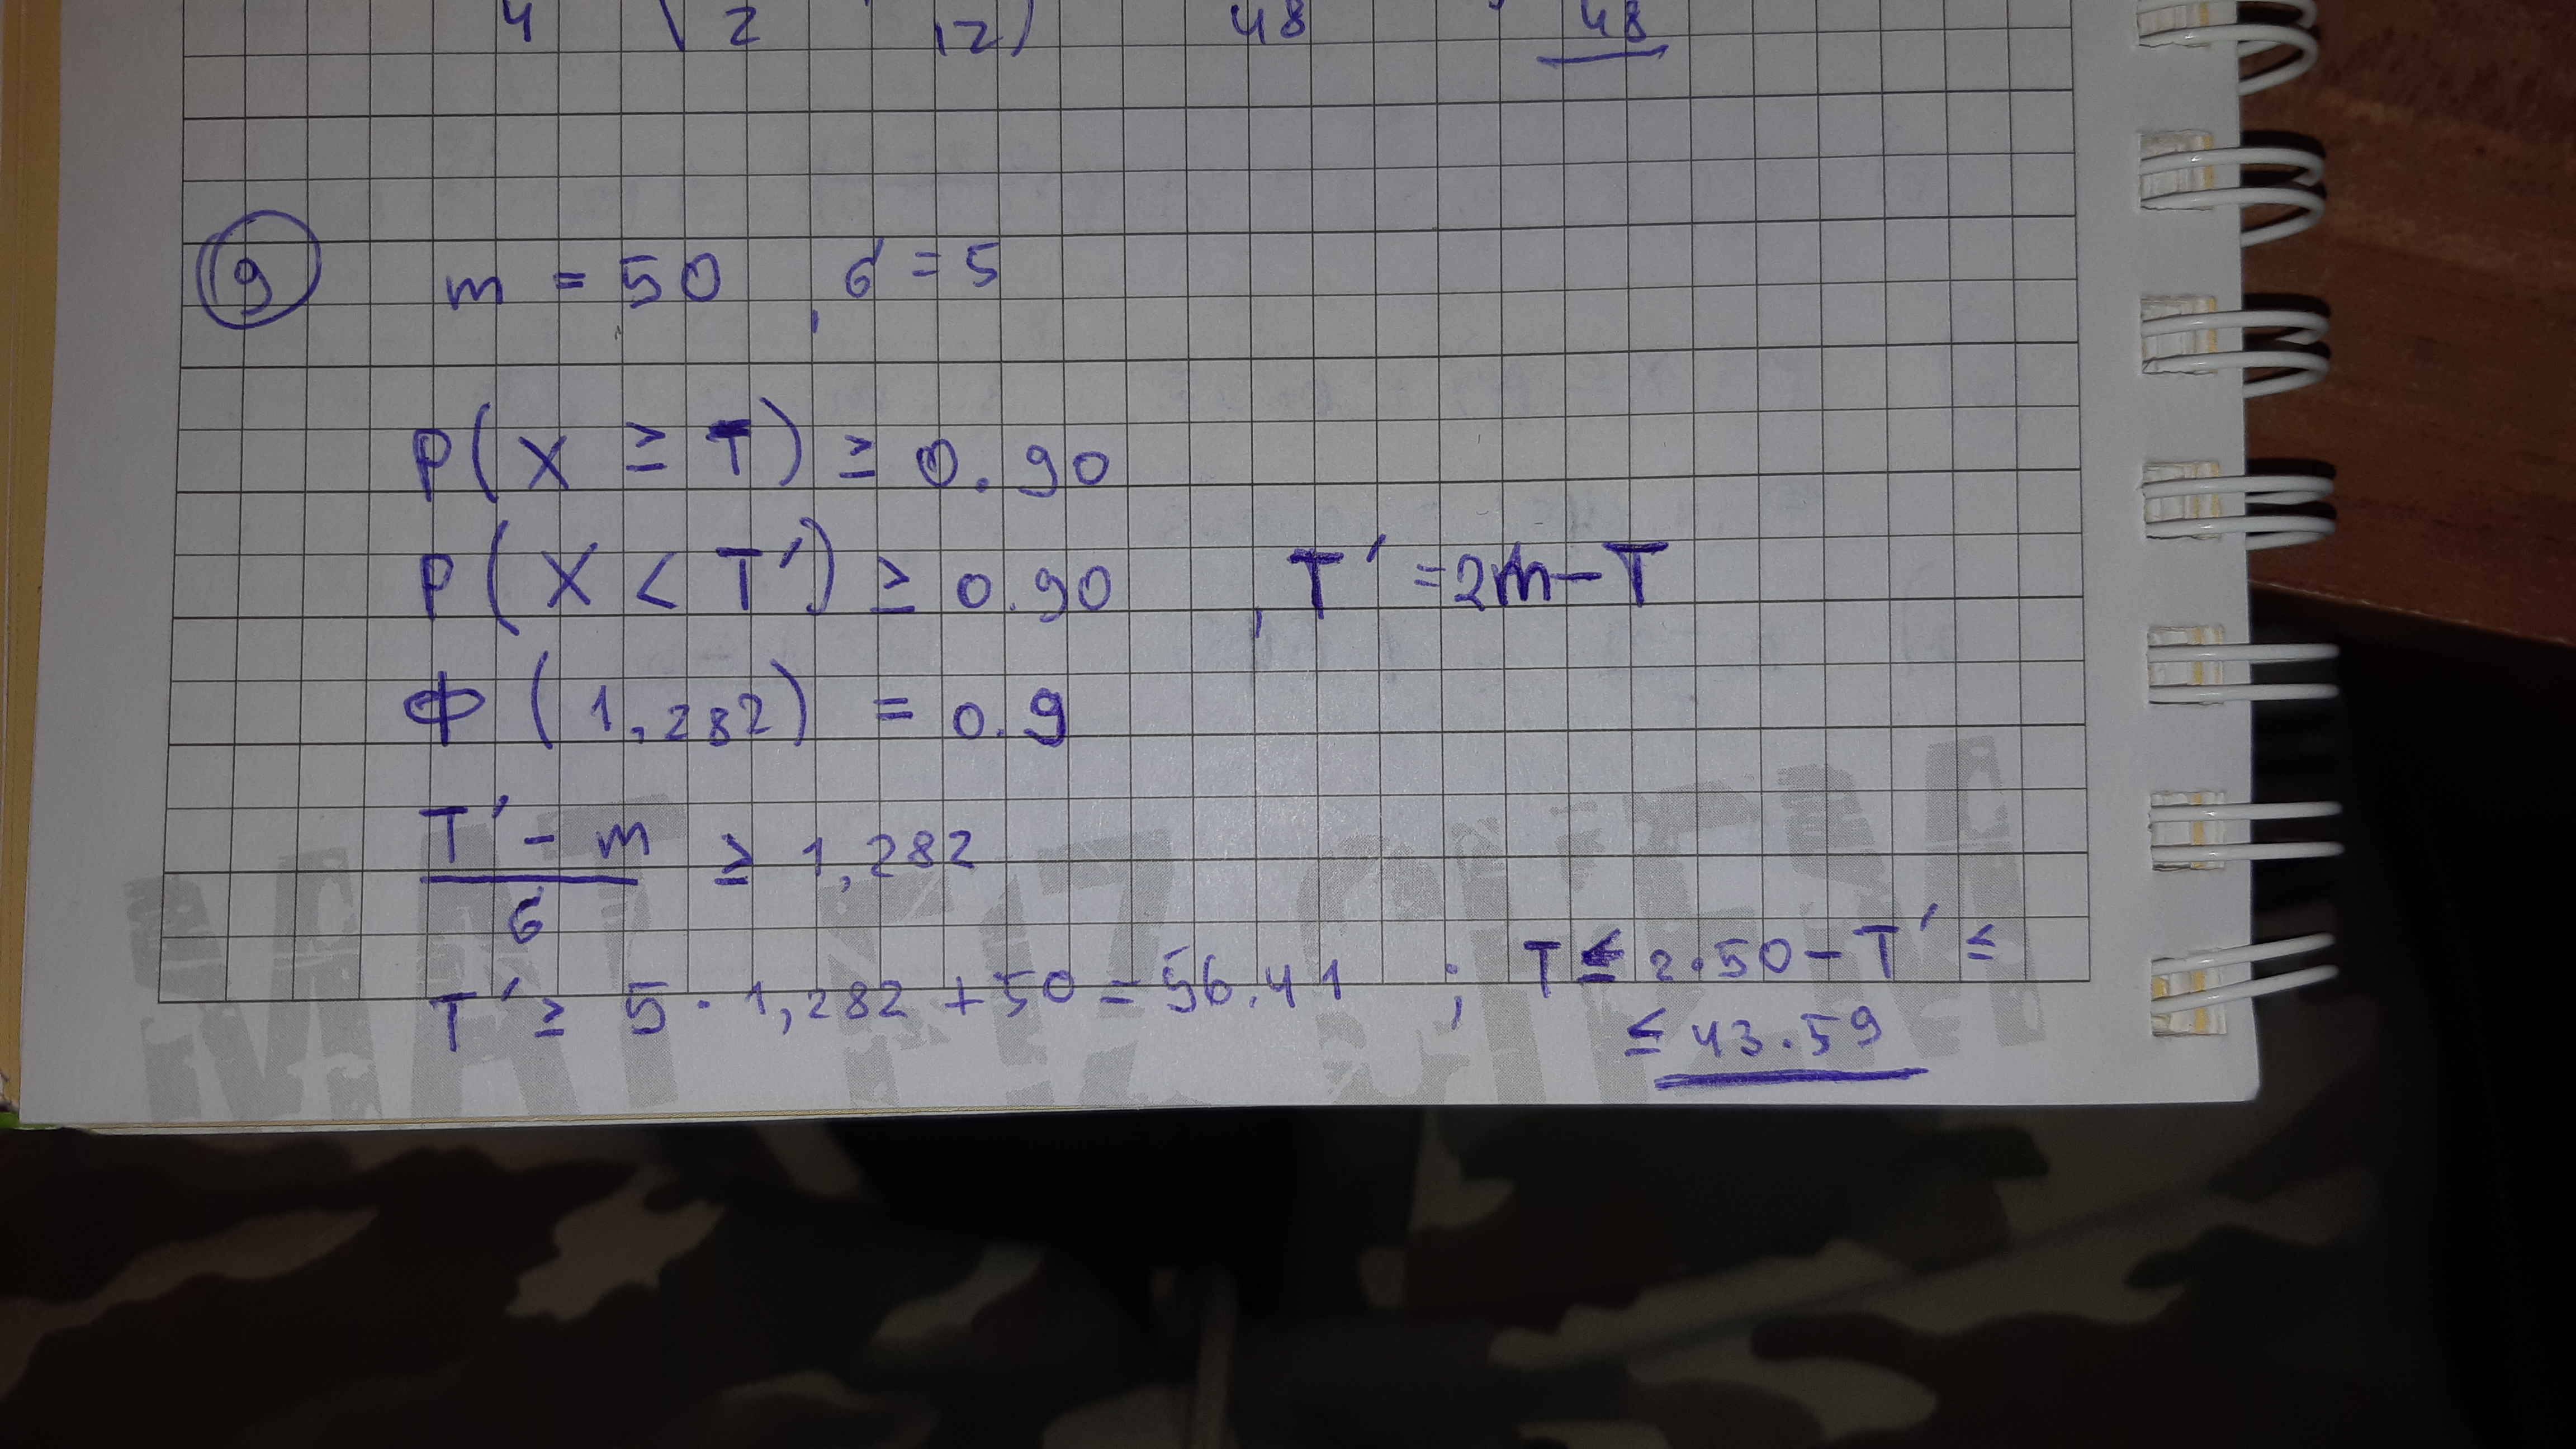 4 ( 2 12) 48 48
9 m = 50 , σ = 5
P(X ≥ T) ≥ 0.90
P(X < T') ≥ 0.90 , T' = 2m - T
Φ(1,282) = 0.9
T' - m ≥ 1,282
σ
T' ≥ 5 · 1,282 + 50 = 56.41 ; T ≤ 2·50 - T' ≤
≤ 43.59